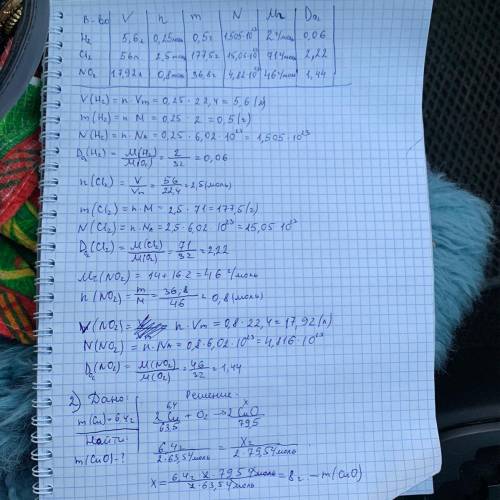 В-во V n m N Mr Do₂
H₂ 5,6л 0,25моль 0,5г 1,505·10²³ 2г/моль 0,06
Cl₂ 56л 2,5моль 177,5г 15,05·10²³ 71г/моль 2,22
NO₂ 17,92л 0,8моль 36,8г 4,82·10²³ 46г/моль 1,44
V(H₂) = n·Vm = 0,25·22,4 = 5,6(л)
m(H₂) = n·M = 0,25·2 = 0,5(г)
N(H₂) = n·Nₐ = 0,25·6,02·10²³ = 1,505·10²³
Do₂(H₂) = M(H₂)/M(O₂) = 2/32 = 0,06
n(Cl₂) = V/Vm = 56/22,4 = 2,5(моль)
m(Cl₂) = n·M = 2,5·71 = 177,5(г)
N(Cl₂) = n·Nₐ = 2,5·6,02·10²³ = 15,05·10²³
Do₂(Cl₂) = M(Cl₂)/M(O₂) = 71/32 = 2,22
Mr(NO₂) = 14+16·2 = 46 г/моль
n(NO₂) = m/M = 36,8/46 = 0,8(моль)
V(NO₂) = n·Vm = 0,8·22,4 = 17,92(л)
N(NO₂) = n·Nₐ = 0,8·6,02·10²³ = 4,816·10²³
Do₂(NO₂) = M(NO₂)/M(O₂) = 46/32 = 1,44
2) Дано: Решение:
m(Cu) = 6,4г
6,4 x
2Cu + O₂ → 2CuO
63,5 79,5
Найти:
m(CuO) - ?
6,4г / 2·63,5г/моль = xг / 2·79,5г/моль
x = 6,4г·2·79,5г/моль / 2·63,5г/моль = 8г – m(CuO)